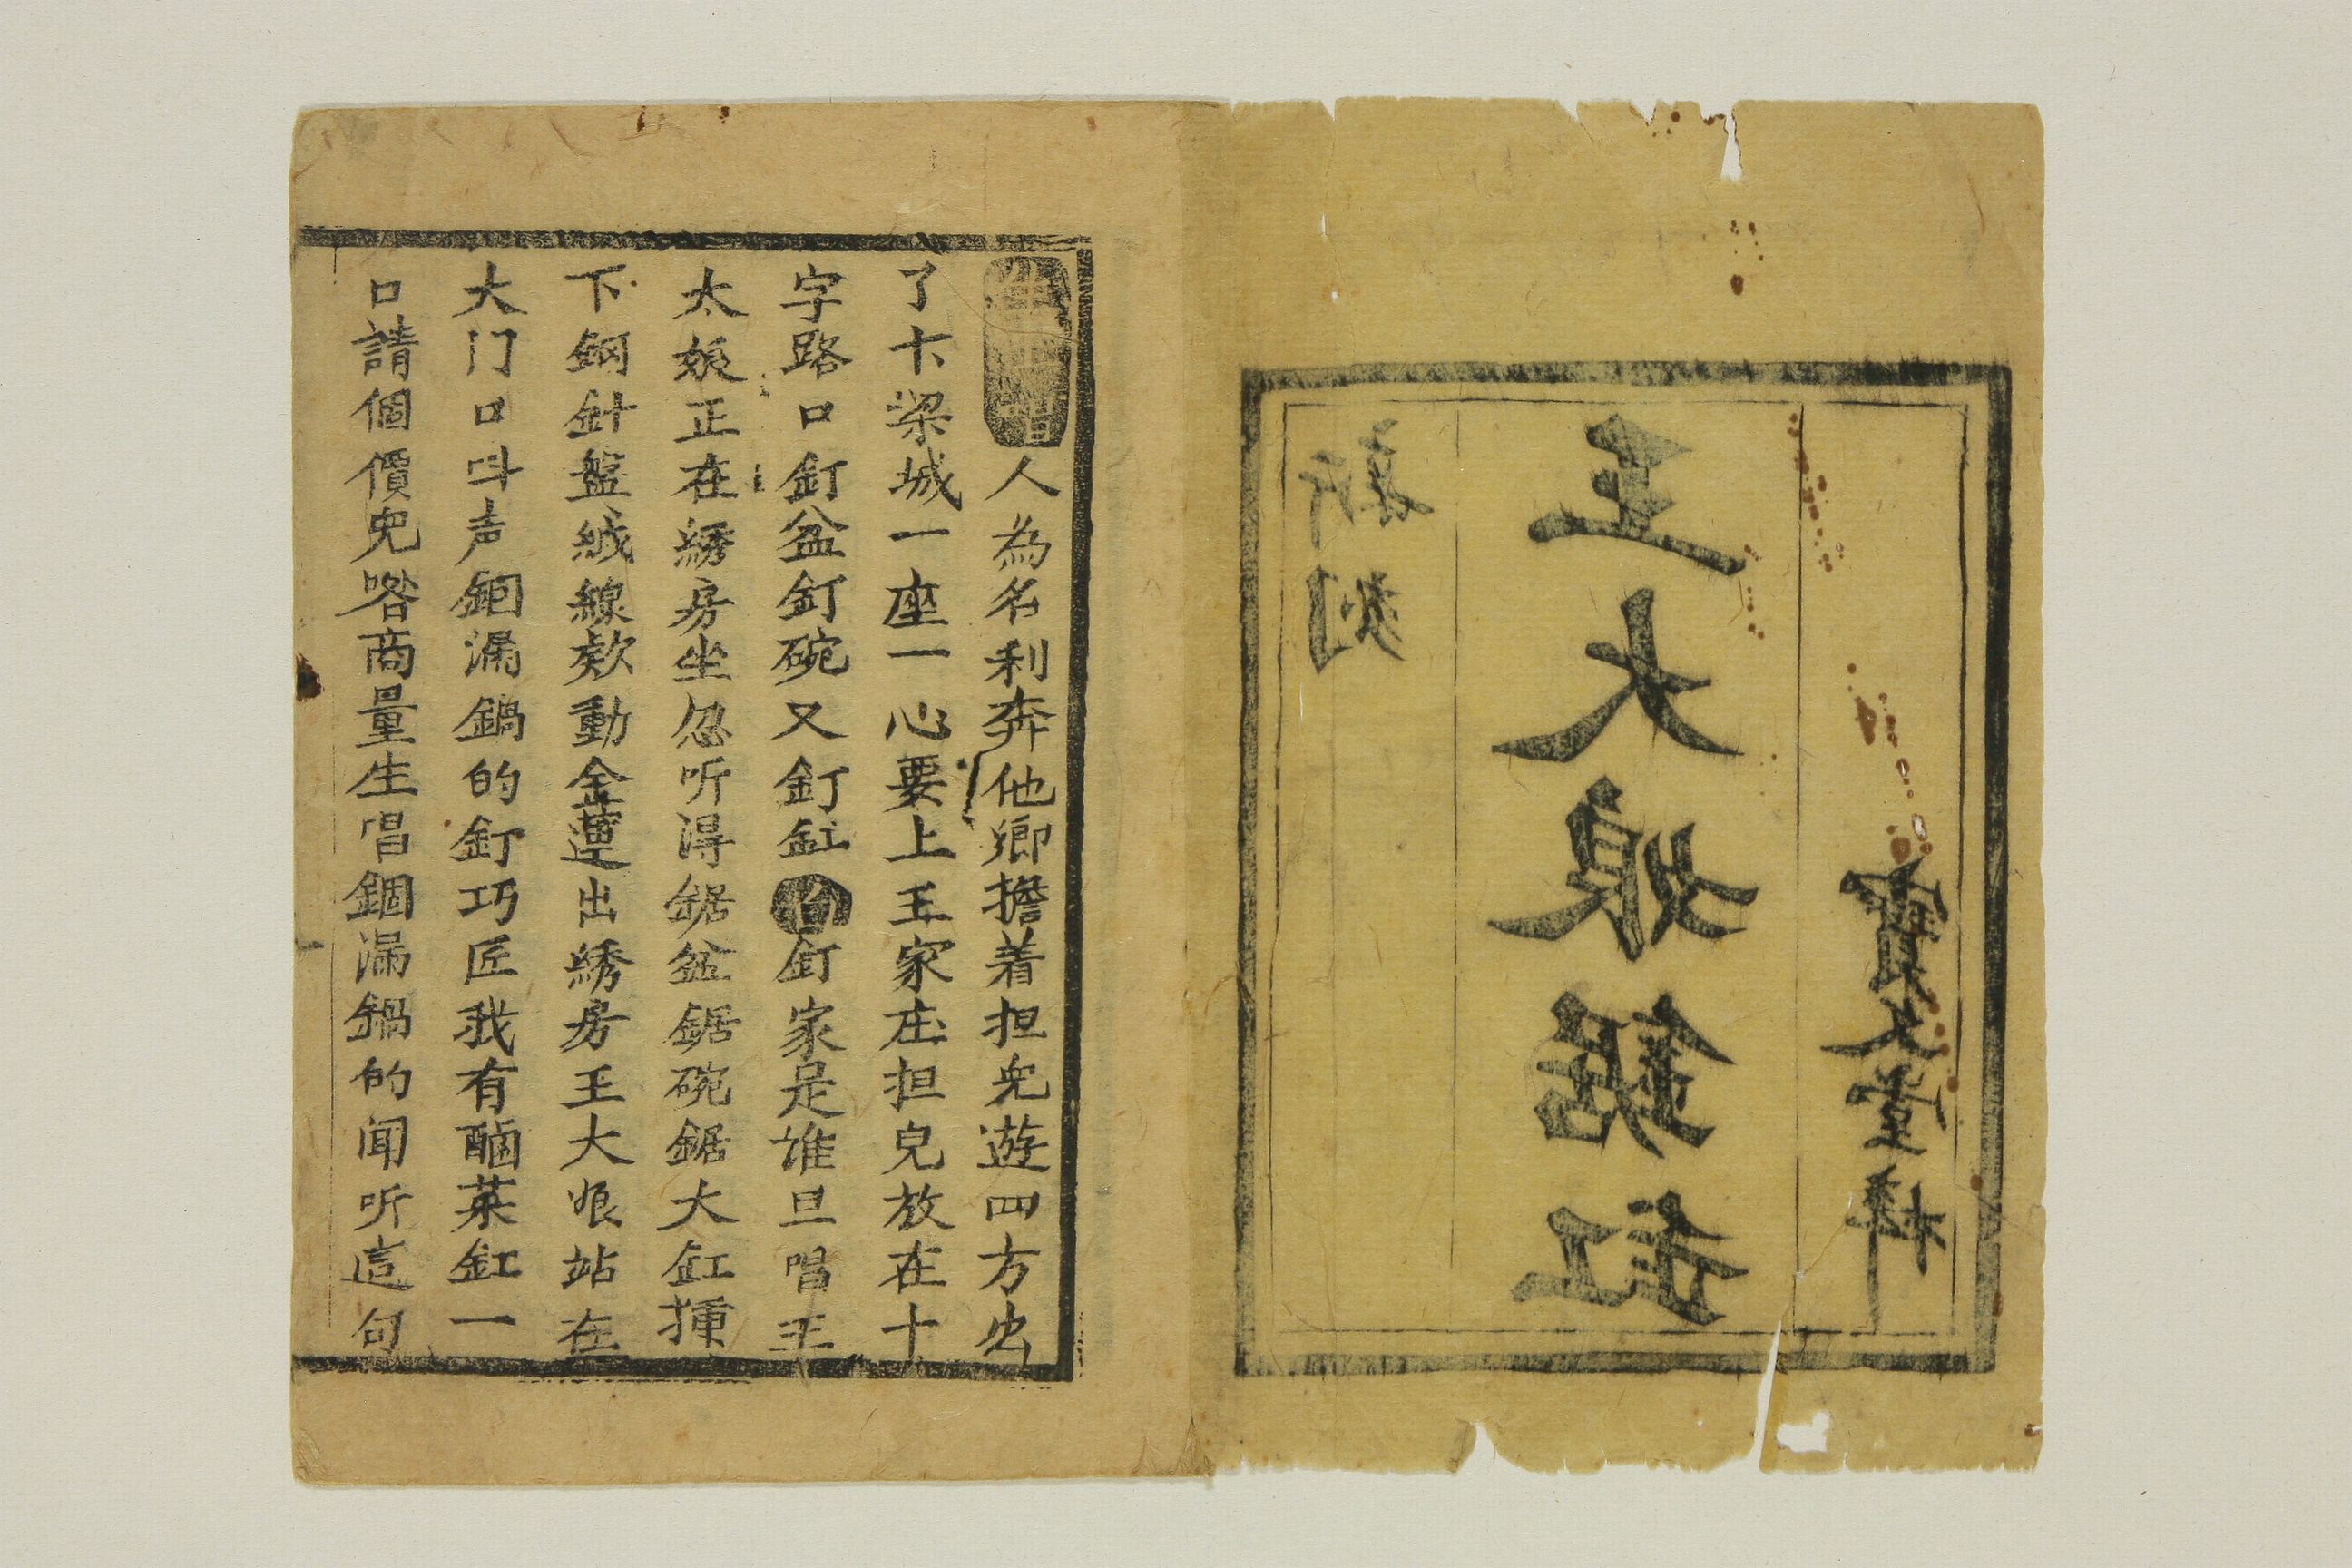 新刻
王大娘鋸缸
寶文堂梓
人為名利奔他鄉擔着担兒遊四方出
了卞梁城一座一心要上王家庄担兒放在十
字路口釘盆釘碗又釘缸白釘家是誰旦唱王
太娘正在綉房坐忽听得鋸盆鋸碗鋸大缸
下鋼針盤絨線欸動金蓮出綉房王大娘站在
大门口呌声錮漏鍋的釘巧匠我有醃菜缸一
口請個價兒喒商量生唱錮漏鍋的闻听這句